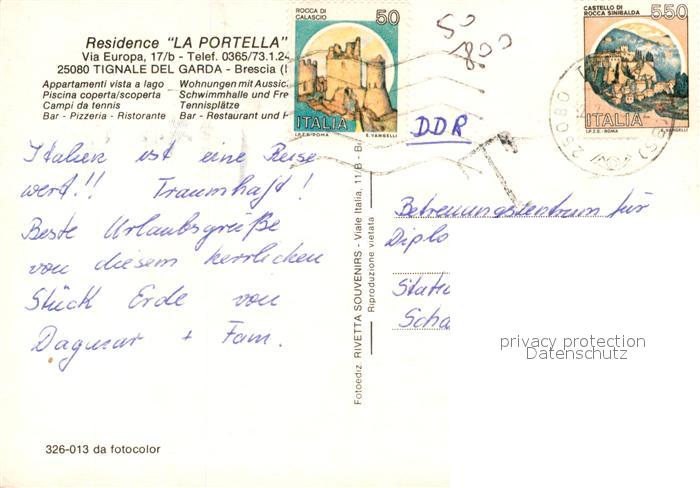 Residence "LA PORTELLA"
Via Europa, 17/b - Telef. 0365/73.1.24
25080 TIGNALE DEL GARDA - Brescia
Appartamenti vista a lago
Piscina coperta/scoperta
Campi da tennis
Bar - Pizzeria - Ristorante
Wohnungen mit Aussic
Schwimmhalle und Fre
Tennisplätze
Bar - Restaurant und
ROCCA DI
CALASCIO
50
ITALIA
I.P.Z.S. - ROMA E. VANGELLI
50
800
CASTELLO DI
ROCCA SINIBALDA
550
ITALIA
I.P.Z.S. - ROMA E. VANGELLI
25080
DDR
T
Italien ist eine Reise
wert!! Traumhaft!
Beste Urlaubsgrüße
von diesem herrlichen
Stück Erde von
Dagmar + Fam.
Fotoediz. RIVETTA SOUVENIRS - Viale Italia, 11/B - B
Riproduzione vietata
Betreuungszentrum für
Diplo
Static
Scha
privacy protection
Datenschutz
326-013 da fotocolor